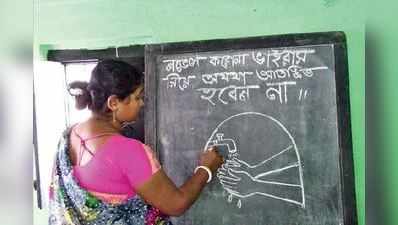 নভেল করোনা ভাইরাস
নিয়ে অযথা আতঙ্কিত
হবেন না ।।